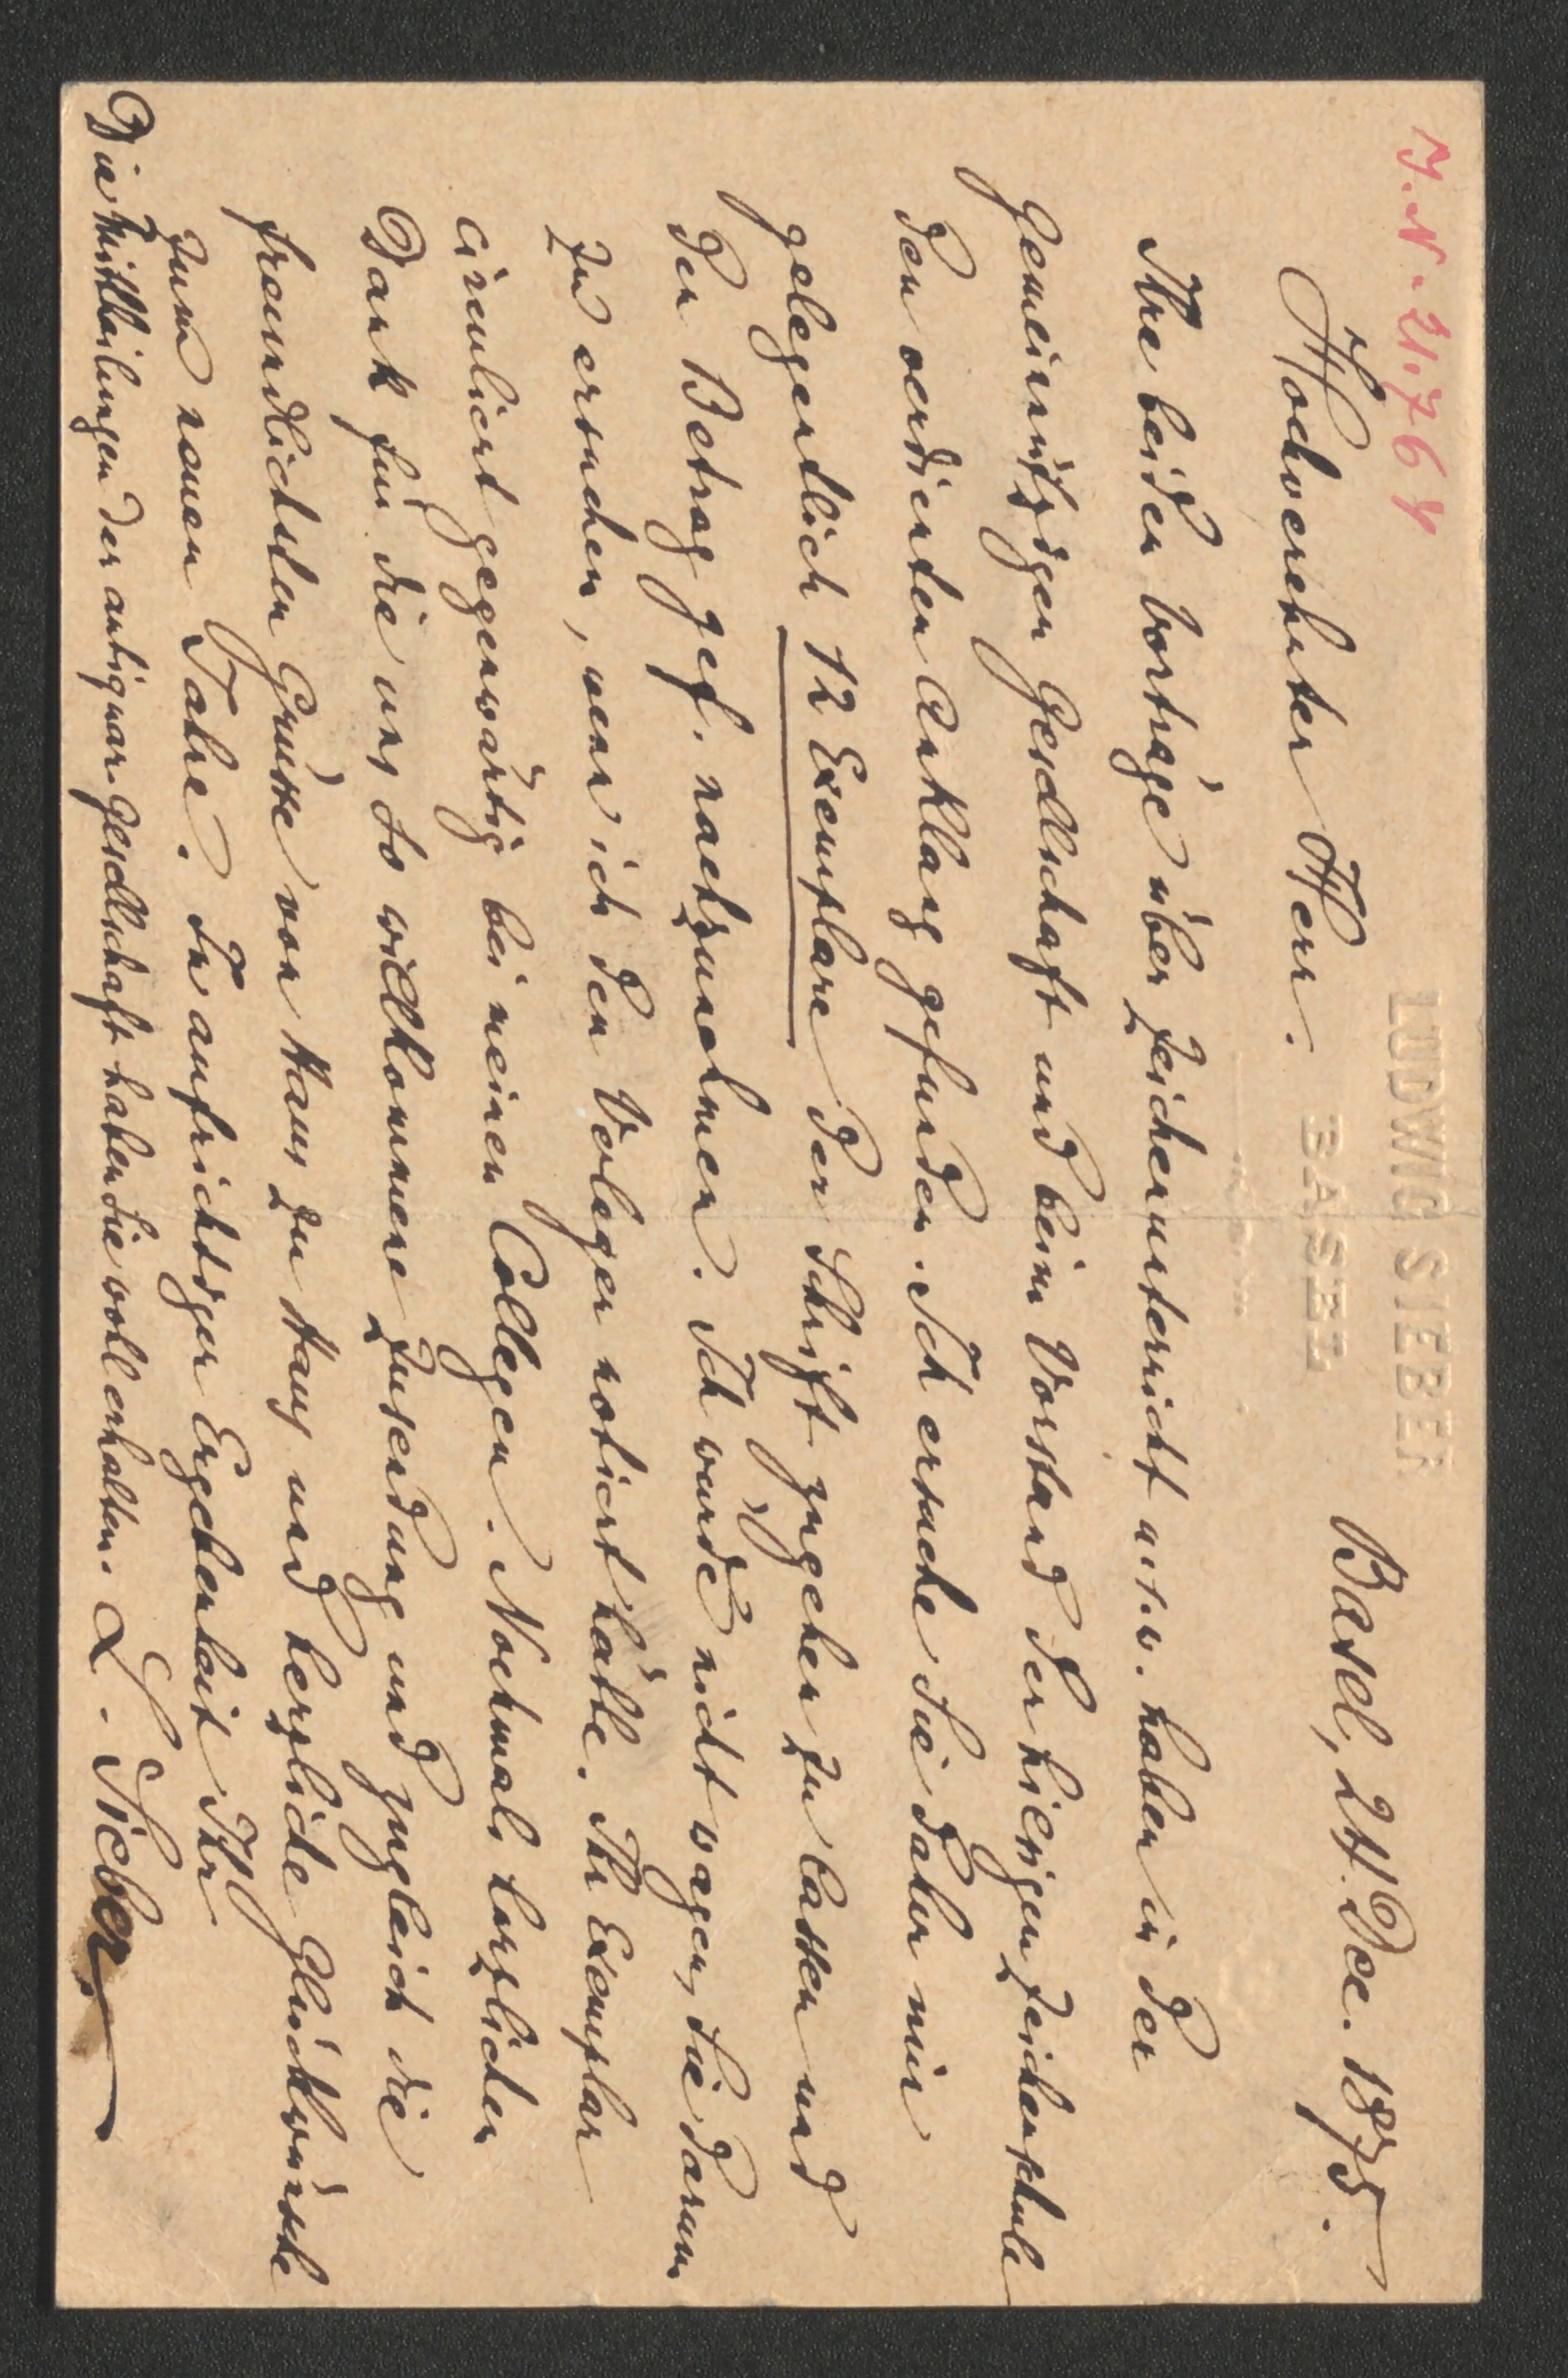 I. N. 21.764
LUDWIG SIEBER
BASEL
Basel, 24. Dec. 1875.
Hochverehrter Herr.
Ihre beiden Vorträge über Zeichenunterricht u. s. w. haben in der
Gemeinnützigen Gesellschaft und beim Vorstand der hiesigen Zeichenschule
den verdienten Anklang gefunden. Ich ersuche Sie daher mir
gelegentlich 12 Exemplare der Schrift zugehen zu lassen und
den Betrag gef. nachzunehmen. Ich würde nicht wagen, Sie darum
zu ersuchen, wenn ich den Verleger notiert hätte. Ihr Exemplar
circuliert gegenwärtig bei meinen Collegen. Nochmals herzlichen
Dank für die uns so willkommene Zusendung und zugleich die
freundlichsten Grüsse von Haus zu Haus und herzliche Glückwünsche
zum neuen Jahre. In aufrichtiger Ergebenheit Ihr
Die Mittheilungen der antiquar. Gesellschaft haben Sie wohl erhalten. L. Sieber.